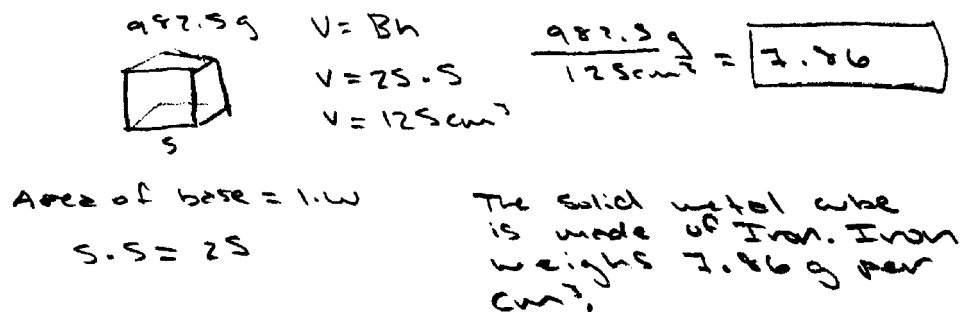 982.5g
V = Bh
V = 25.5
V = 125cm³
5
982.5 g
125cm³
= 7.86
Area of base = l.w
5.5 = 25
The solid metal cube
is made of Iron. Iron
weighs 7.86 g per
cm³.